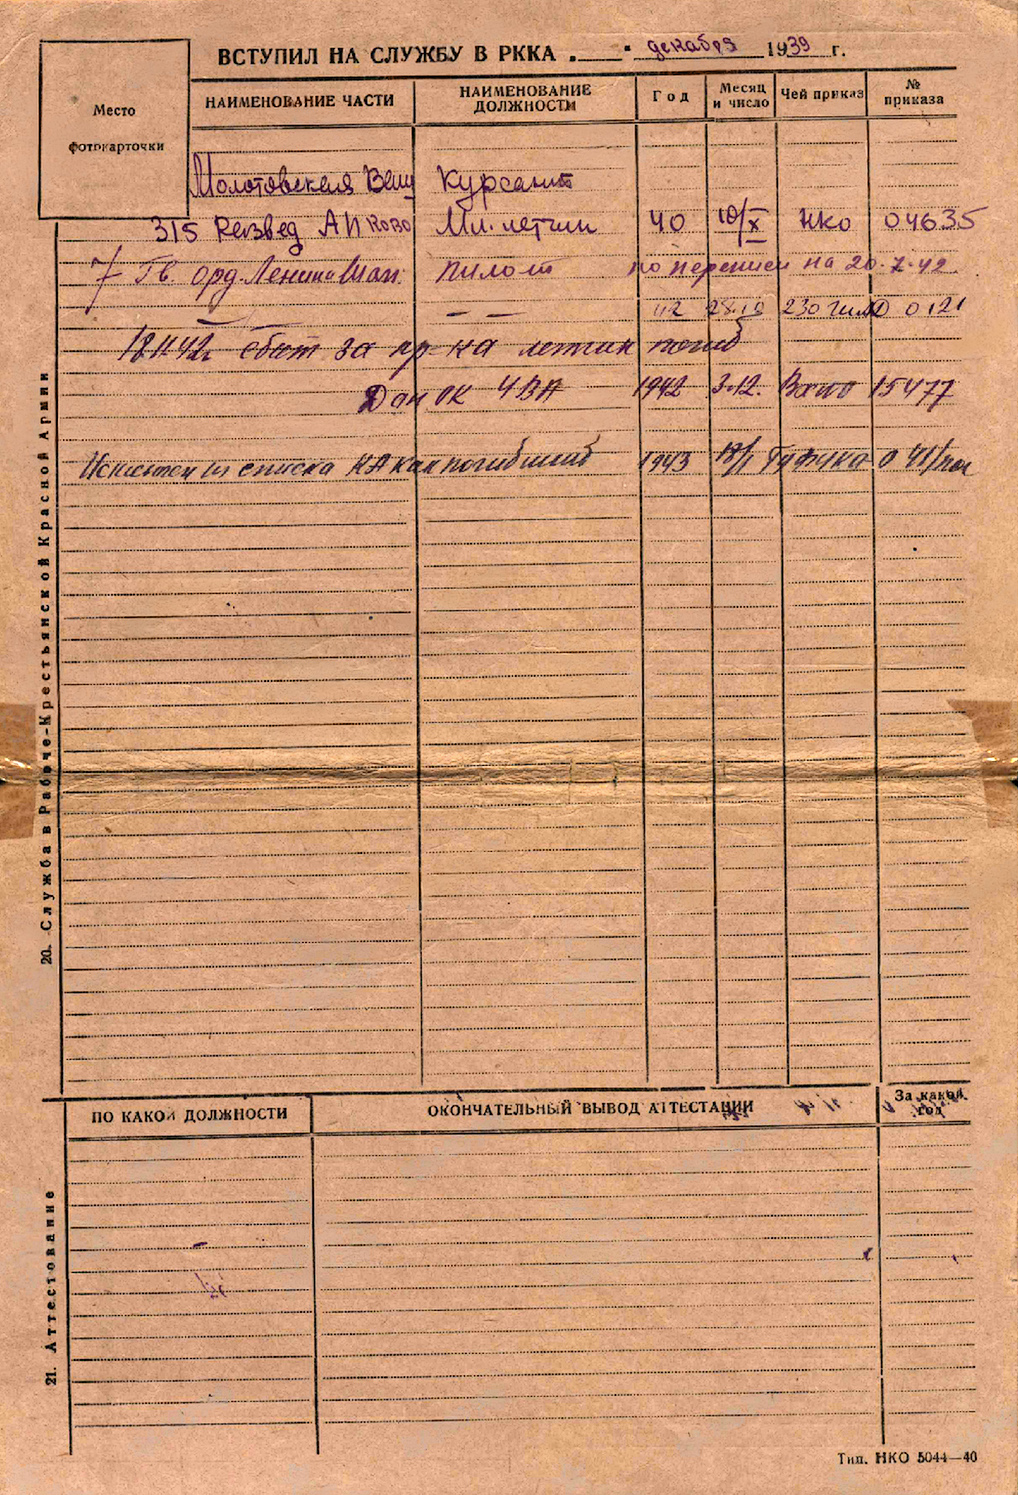 ВСТУПИЛ НА СЛУЖБУ В РККА „ “ декабря 1939 г.
Место фотокарточки
НАИМЕНОВАНИЕ ЧАСТИ НАИМЕНОВАНИЕ ДОЛЖНОСТИ Год Месяц и число Чей приказ № приказа
Молотовская Ваш Курсант
315 Развед АП КОВО Мл. летчик 40 10/X НКО 04635
7 Гв. орд. Ленина Шап. пилот по переписи на 20.7.42
— — — — 42 28.10 230 0121
18.11.42г. сбит за пр-ка летчик погиб
Дон ОК 4ВА 1942 3.12. 15477
Исключен из списка КА как погибший 1943 ГУФУКА 041/пог
20. Служба в Рабоче-Крестьянской Красной Армии
ПО КАКОЙ ДОЛЖНОСТИ ОКОНЧАТЕЛЬНЫЙ ВЫВОД АТТЕСТАЦИИ За какой год
21. Аттестование
Тип. НКО 5044—40